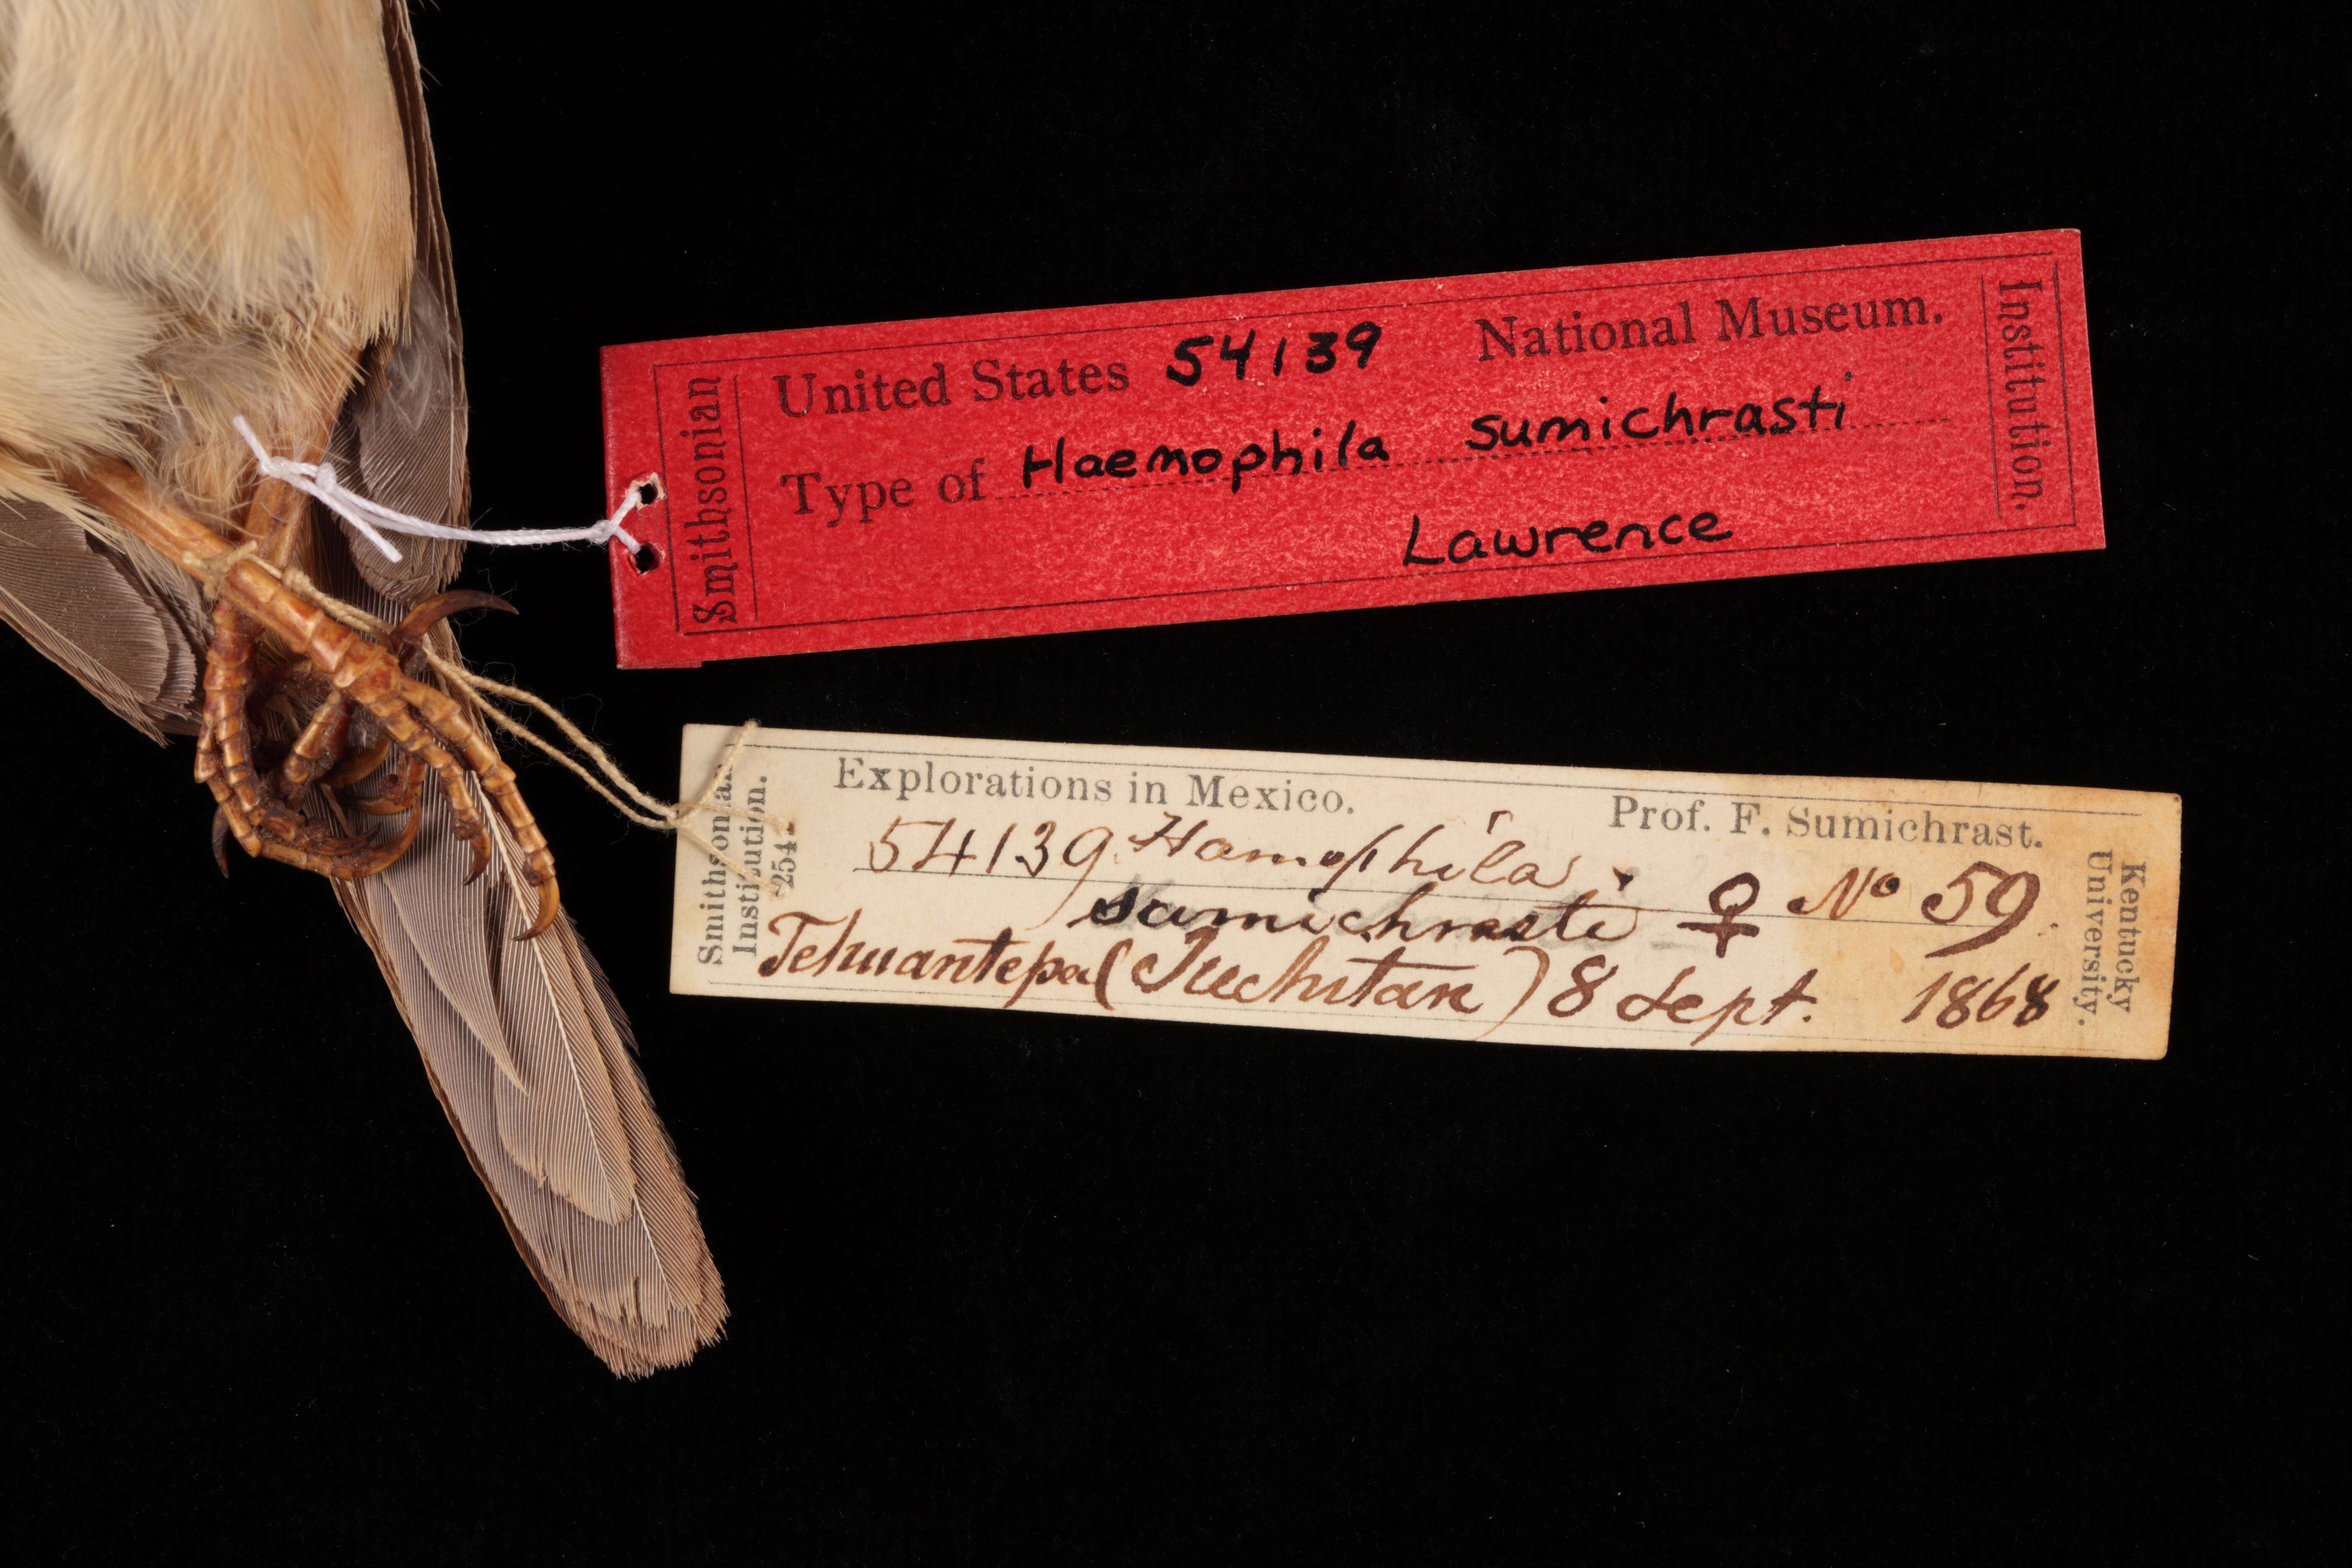 Smithsonian
United States 54139 National Museum.
Type of Haemophila sumichrasti
Lawrence
Institution.
Smithsonian
Institution.
254
Explorations in Mexico. Prof. F. Sumichrast.
54139 Hamophila
sumichrasti ♀ No 59.
Tehuantepec (Juchitan) 8 Sept. 1868
Kentucky
University.